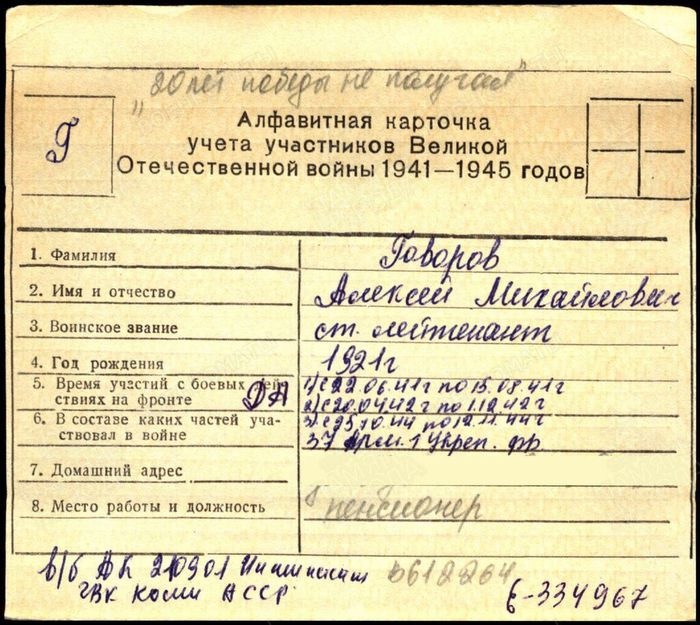 "20 лет победы не получал"
Г
Алфавитная карточка
учета участников Великой
Отечественной войны 1941—1945 годов
1. Фамилия Говоров
2. Имя и отчество Алексей Михайлович
3. Воинское звание ст. лейтенант
4. Год рождения 1921г
5. Время участий с боевых дей-
ствиях на фронте ДА 1) с 22.06.41г по 15.08.41г
2) с 20.04.42г по 1.12.42г
6. В составе каких частей уча-
ствовал в войне 3) с 25.10.44 по 12.11.44г
37 арм. 1 Укреп. фр
7. Домашний адрес
8. Место работы и должность пенсионер
в/б АК 210901 0612264
ГВК Коми АССР Б-334967